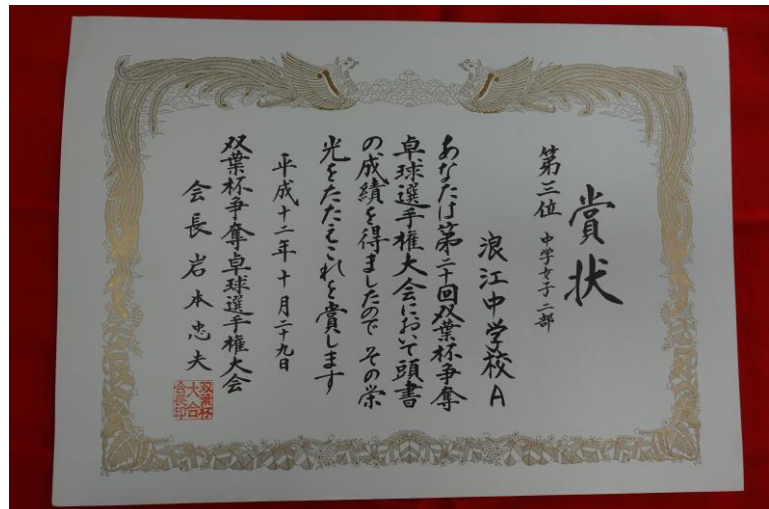 賞状
第三位 中学女子二部
浪江中学校A
あなたは第二十回双葉杯争奪
卓球選手権大会において頭書
の成績を得ましたので その栄
光をたたえこれを賞します
平成十二年十月二十九日
双葉杯争奪卓球選手権大会
会長 岩本忠夫
双葉杯
大会
会長印